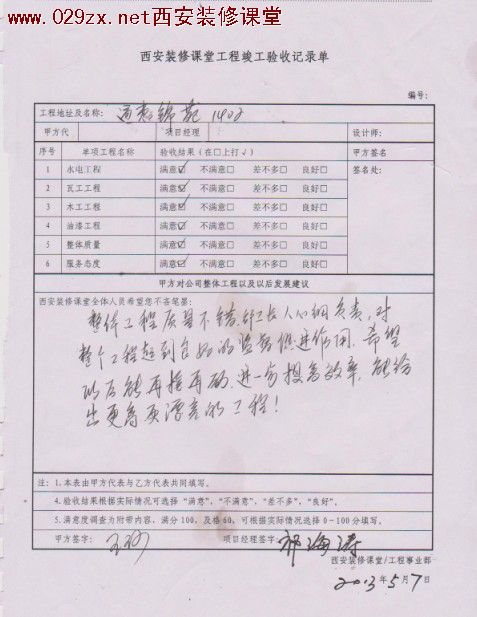 www.029zx.net西安装修课堂
西安装修课堂工程竣工验收记录单
编号:
工程地址及名称: 通 锦苑 1402
甲方代 项目经理 设计师:
序号 单项工程名称 验收结果(在□上打√) 甲方签名
1 水电工程 满意☑ 不满意□ 差不多□ 良好□ 签名处:
2 瓦工工程 满意☑ 不满意□ 差不多□ 良好□
3 木工工程 满意☑ 不满意□ 差不多□ 良好□
4 油漆工程 满意☑ 不满意□ 差不多□ 良好□
5 整体质量 满意☑ 不满意□ 差不多□ 良好□
6 服务态度 满意☑ 不满意□ 差不多□ 良好□
甲方对公司整体工程以及以后发展建议
西安装修课堂全体人员希望您不吝笔墨:
整体工程质量不错,红工长人心细负责,对
整个工程起到良好的监督促进作用,希望
以后能再接再砺,进一步提高效率,能给
出更高更漂亮的工程!
注: 1.本表由甲方代表与乙方代表共同填写。
4.验收结果根据实际情况可选择“满意”,“不满意”,“差不多”,“良好”。
5.满意度调查为附带内容,满分100,及格60,可根据实际情况选择0-100分填写。
甲方签字: 项目经理签字: 祁海涛
西安装修课堂/工程事业部
2013年5月7日